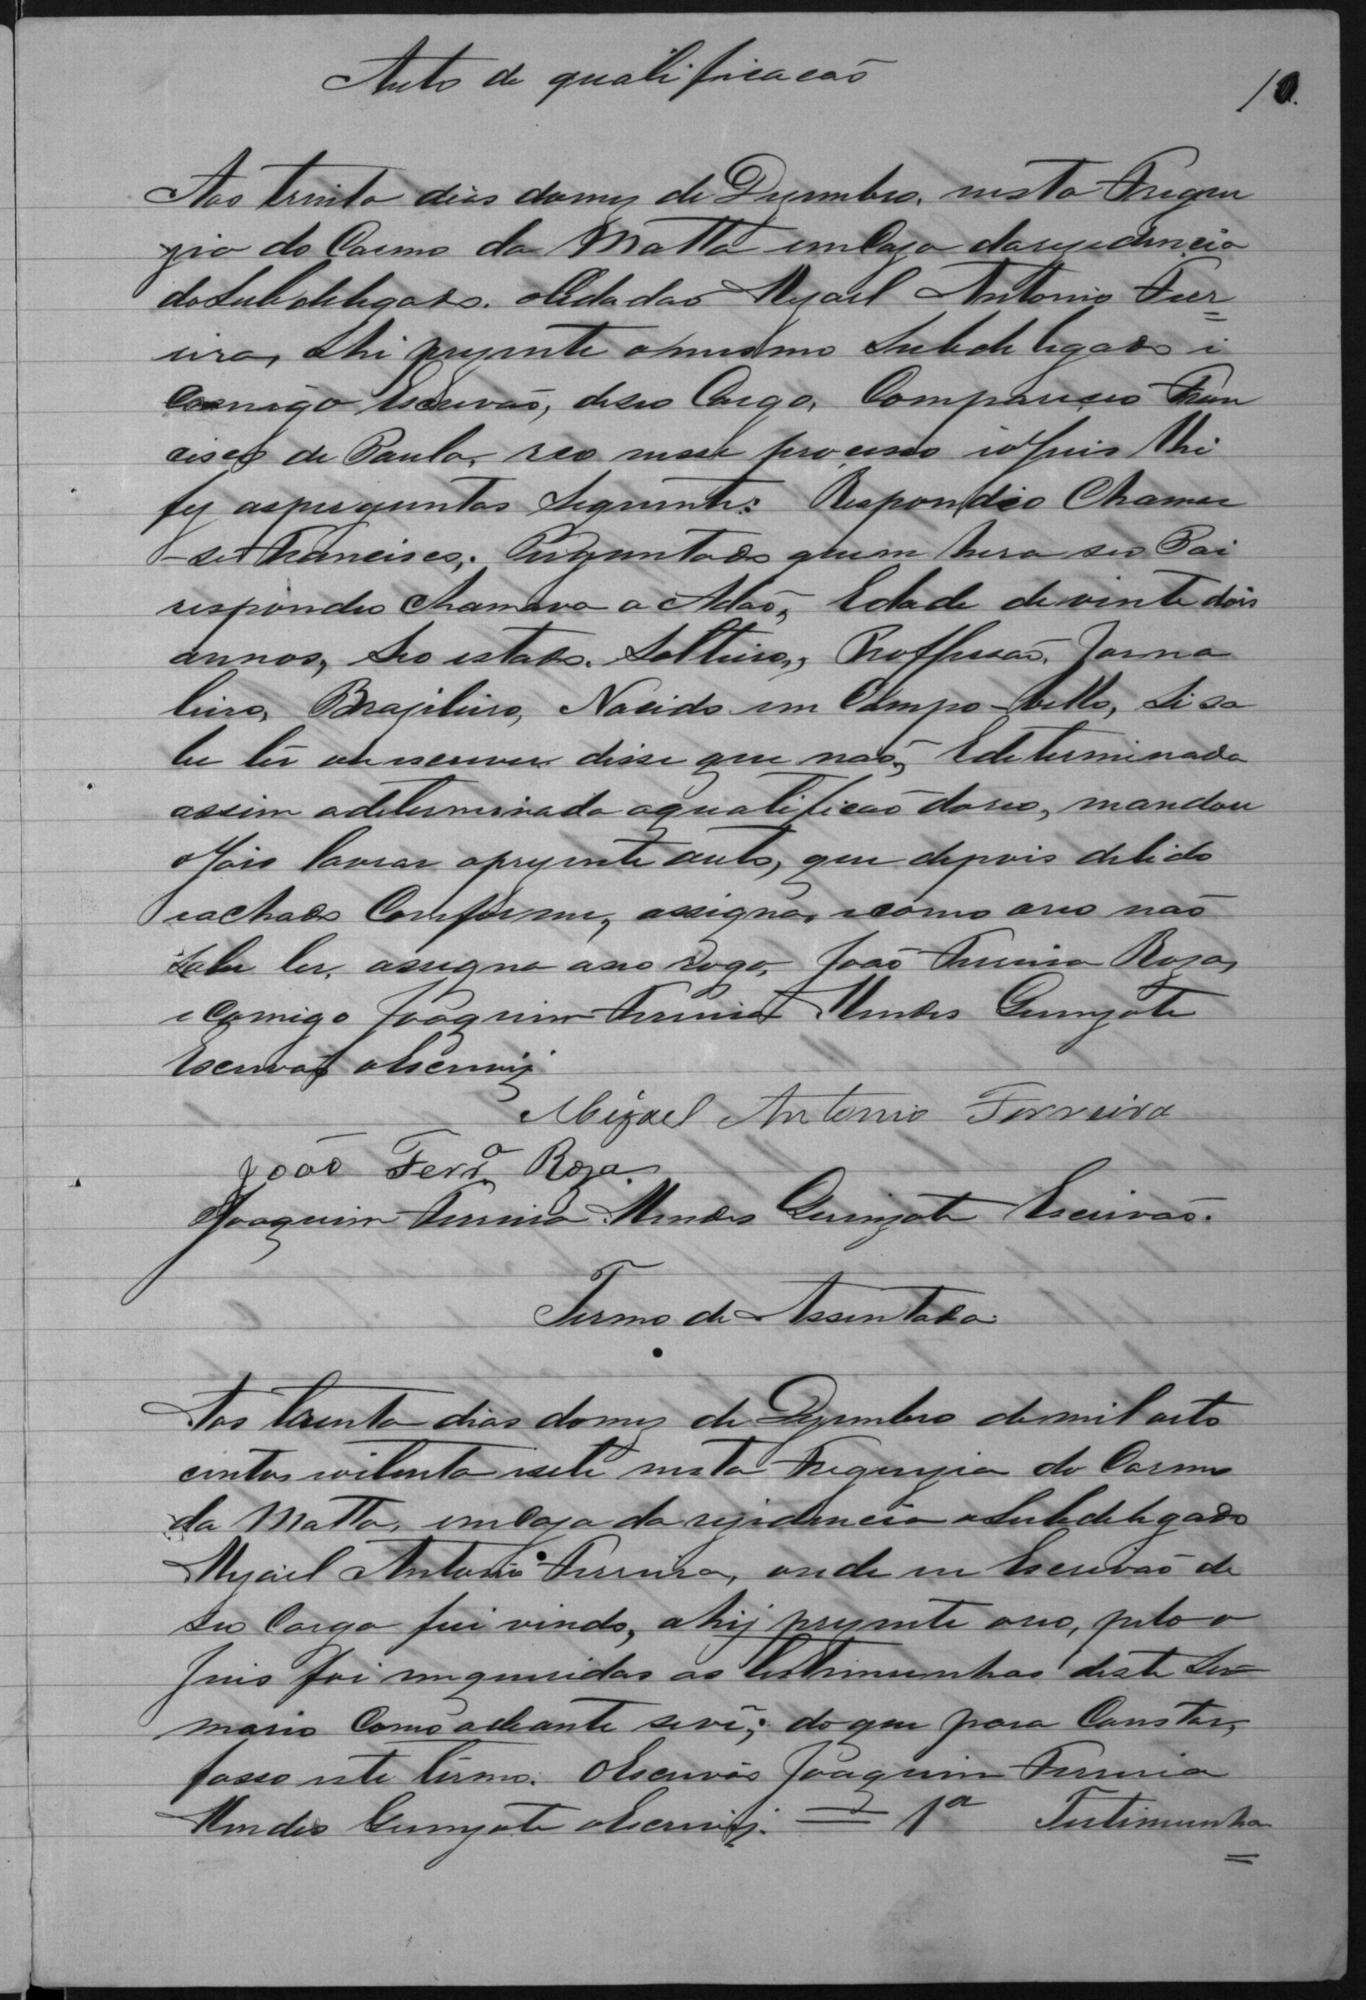 Auto de qualificacaõ
10.
Aos trinta dias do mez de Dezembro, nesta Fregue
zia do Carmo da Matta em Caza da rezidencia
do Subdelegado. o Cidadaõ Mizael Antonio Ferr
eira, ahi prezente o mesmo Subdelegado e
Comigo Escrivaõ, deseo Cargo, Compareceo Fran
cisco de Paula, reo nesse processo eo Juis lhe
fez as perguntas Seguinte: Respondeo Chamar
-se Francisco; Perguntado quem hera seo Pai
respondeo chamava a Adaõ, Edade de vinte dois
annos, Seo estado. Solteiro, Proffissaõ, Jorna
leiro, Brazileiro, Nacido em Campo-bello, Si sa
be lêr ou escrever disse que naõ, E determinada
assim a determinada a qualificaõ do reo, mandou
o Juis lavrar o prezente auto, que depois de lido
e achado Conforme, assigna, e como o reo naõ
sabe ler, assigna a seo rogo, Joaõ Ferreira Roza,
e Comigo Joaquim Ferreira Mendes
Escrivaõ o Escrevij
Mizael Antonio Ferreira
Joaõ Ferr.ª Roza
Joaquim Ferreira Mendes Escrivaõ.
Termo de Assentada.
Aos trinta dias do mez de Dezembro de mil oito
centos e oitenta e sete nesta Freguezia do Carmo
da Matta, em Caza da rezidencia o Subdelegado
Mizael Antonio Ferreira, onde eu Escrivaõ de
seo Cargo fui vindo, ahij prezente o reo, pelo o
Juis foi inqueridas as testimunhas deste Su-
mario Como adeante se vê; do que para Constar,
fasso este têrmo. O Escrivaõ Joaquim Ferreira
Mendes o Escrevij. = 1ª Testimunha